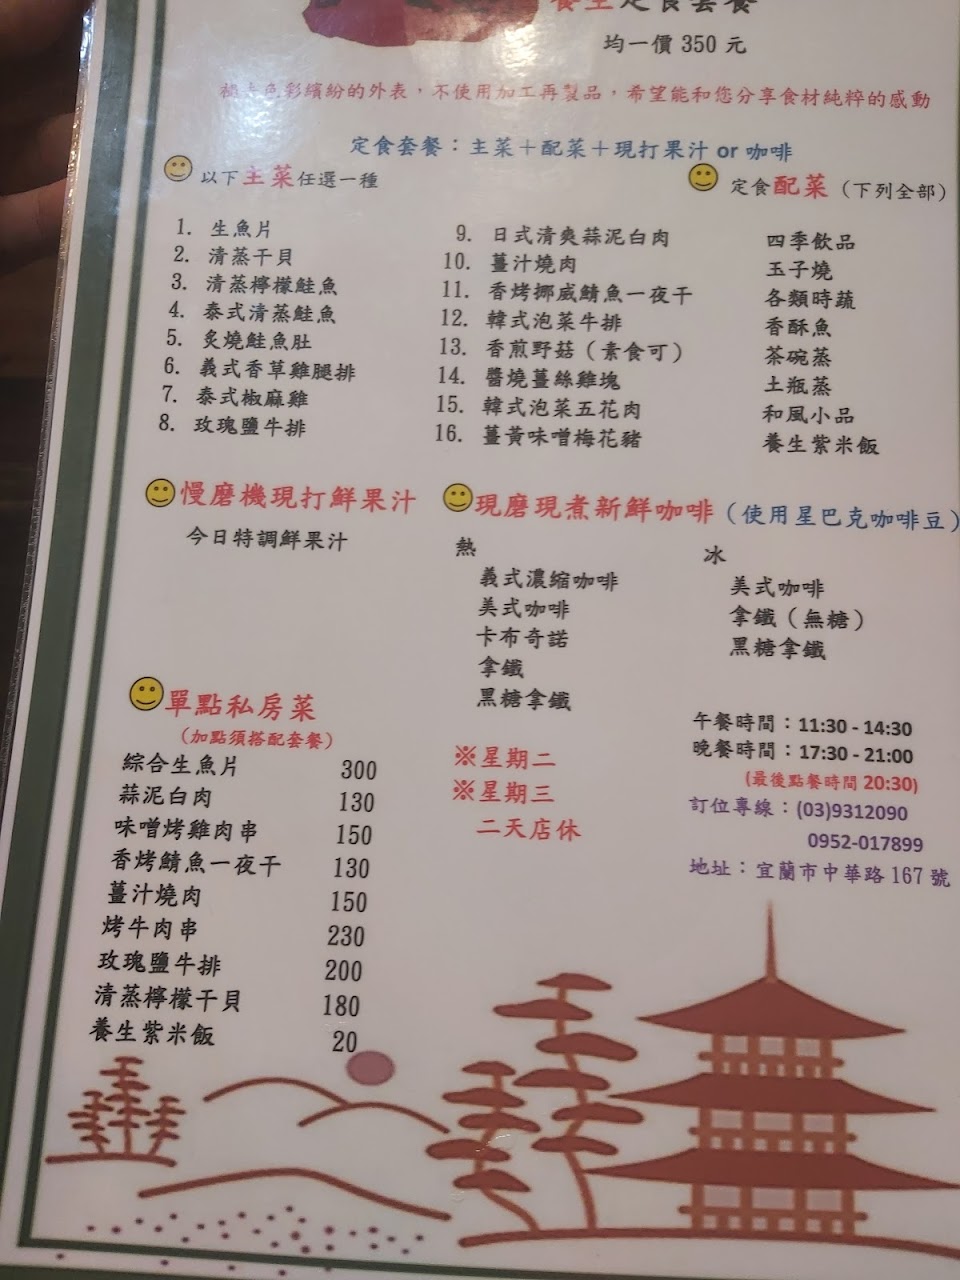 養生定食套餐
均一價 350 元
色彩繽紛的外表,不使用加工再製品,希望能和您分享食材純粹的感動
定食套餐:主菜+配菜+現打果汁 or 咖啡
以下主菜任選一種
1. 生魚片
2. 清蒸干貝
3. 清蒸檸檬鮭魚
4. 泰式清蒸鮭魚
5. 炙燒鮭魚肚
6. 義式香草雞腿排
7. 泰式椒麻雞
8. 玫瑰鹽牛排
9. 日式清爽蒜泥白肉
10. 薑汁燒肉
11. 香烤挪威鯖魚一夜干
12. 韓式泡菜牛排
13. 香煎野菇(素食可)
14. 醬燒薑絲雞塊
15. 韓式泡菜五花肉
16. 薑黃味噌梅花豬
定食配菜(下列全部)
四季飲品
玉子燒
各類時蔬
香酥魚
茶碗蒸
土瓶蒸
和風小品
養生紫米飯
慢磨機現打鮮果汁
今日特調鮮果汁
現磨現煮新鮮咖啡(使用星巴克咖啡豆)
熱
義式濃縮咖啡
美式咖啡
卡布奇諾
拿鐵
黑糖拿鐵
冰
美式咖啡
拿鐵(無糖)
黑糖拿鐵
單點私房菜
(加點須搭配套餐)
綜合生魚片 300
蒜泥白肉 130
味噌烤雞肉串 150
香烤鯖魚一夜干 130
薑汁燒肉 150
烤牛肉串 230
玫瑰鹽牛排 200
清蒸檸檬干貝 180
養生紫米飯 20
※星期二
※星期三
二天店休
午餐時間:11:30 - 14:30
晚餐時間:17:30 - 21:00
(最後點餐時間 20:30)
訂位專線:(03)9312090
0952-017899
地址:宜蘭市中華路 167 號